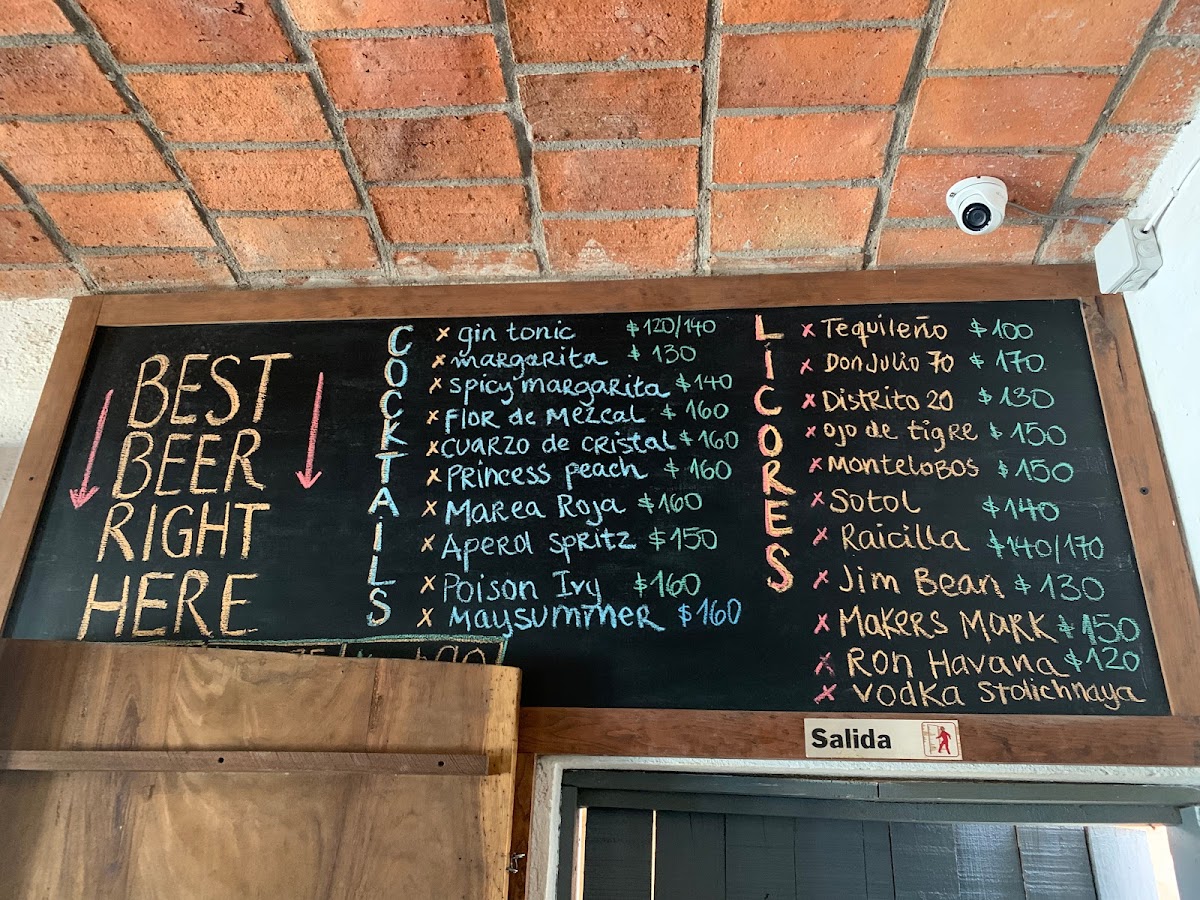 BEST
BEER
RIGHT
HERE
COCKTAILS
x gin tonic $120/140
x margarita $130
x spicy margarita $140
x Flor de Mezcal $160
x Cuarzo de cristal $160
x Princess peach $160
x Marea Roja $160
x Aperol spritz $150
x Poison Ivy $160
x Maysummer $160
LICORES
x Tequileño $100
x Don Julio 70 $170
x Distrito 20 $130
x ojo de tigre $150
x Montelobos $150
x Sotol $140
x Raicilla $140/170
x Jim Bean $130
x Makers Mark $150
x Ron Havana $120
x Vodka Stolichnaya
Salida